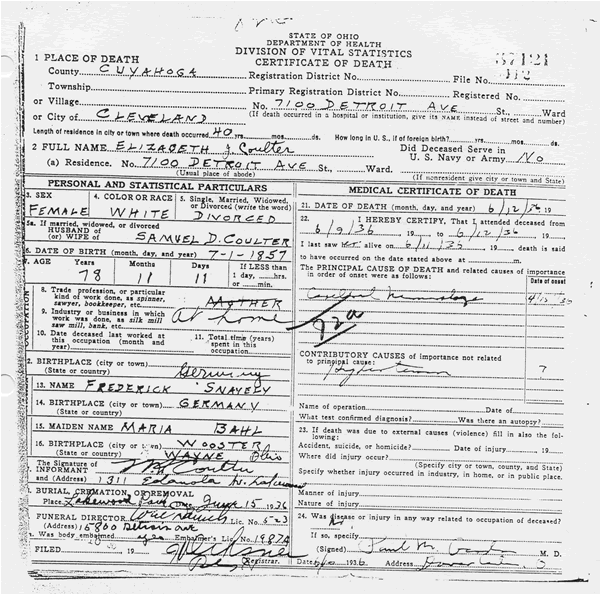 STATE OF OHIO
DEPARTMENT OF HEALTH
DIVISION OF VITAL STATISTICS
CERTIFICATE OF DEATH
37121
1 PLACE OF DEATH
County CUYAHOGA Registration District No. File No. 112
Township Primary Registration District No. Registered No.
or Village No. 7100 DETROIT AVE St., Ward
or City of CLEVELAND (If death occurred in a hospital or institution, give its NAME instead of street and number)
Length of residence in city or town where death occurred 40 yrs. mos. ds. How long in U.S., if of foreign birth? yrs. mos. ds.
2 FULL NAME ELIZABETH J Coulter Did Deceased Serve in U. S. Navy or Army NO
(a) Residence. No. 7100 DETROIT AVE St., Ward.
(Usual place of abode) (If nonresident give city or town and State)
PERSONAL AND STATISTICAL PARTICULARS
3. SEX FEMALE
4. COLOR OR RACE WHITE
5. Single, Married, Widowed, or Divorced (write the word) DIVORCED
5a. If married, widowed, or divorced
HUSBAND of
(or) WIFE of SAMUEL D. COULTER
6. DATE OF BIRTH (month, day, and year) 7-1-1857
7. AGE Years Months Days If LESS than
78 11 11 1 day, hrs.
or min.
8. Trade, profession, or particular
kind of work done, as spinner,
sawyer, bookkeeper, etc. MOTHER
9. Industry or business in which
work was done, as silk mill
saw mill, bank, etc. at home
10. Date deceased last worked at
this occupation (month and
year)
11. Total time (years)
spent in this
occupation
12. BIRTHPLACE (city or town)
(State or country) Germany
13. NAME FREDERICK SNAVELY
14. BIRTHPLACE (city or town) GERMANY
(State or country)
15. MAIDEN NAME MARIA BAHL
16. BIRTHPLACE (city or town) WOOSTER
(State or country) WAYNE Ohio
The Signature of
INFORMANT Coulter
and (Address) 1311
BURIAL, CREMATION, OR REMOVAL
Place Lakewood Park on June 15 1936
FUNERAL DIRECTOR Lic. No. 523
(Address) 5800 Detroit ave
Was body embalmed yes Embalmer's Lic. No. 1987A
FILED 19
Registrar.
MEDICAL CERTIFICATE OF DEATH
21. DATE OF DEATH (month, day, and year) 6/12/36 19
22. I HEREBY CERTIFY, That I attended deceased from
6/9/36 19 to 6/12/36 19
I last saw alive on 6/11/36 19 death is said
to have occurred on the date stated above at m.
THE PRINCIPAL CAUSE OF DEATH and related causes of importance
in order of onset were as follows:
Date of onset
Cerebral Hemorrhage
82a
CONTRIBUTORY CAUSES of importance not related
to principal cause:
Hypertension ?
Name of operation Date of
What test confirmed diagnosis? Was there an autopsy?
23. If death was due to external causes (violence) fill in also the following:
Accident, suicide, or homicide? Date of injury 19
Where did injury occur?
(Specify city or town, county, and State)
Specify whether injury occurred in industry, in home, or in public place.
Manner of injury
Nature of injury
24. Was disease or injury in any way related to occupation of deceased?
If so, specify
(Signed) Paul M. M. D.
Date 1936 Address